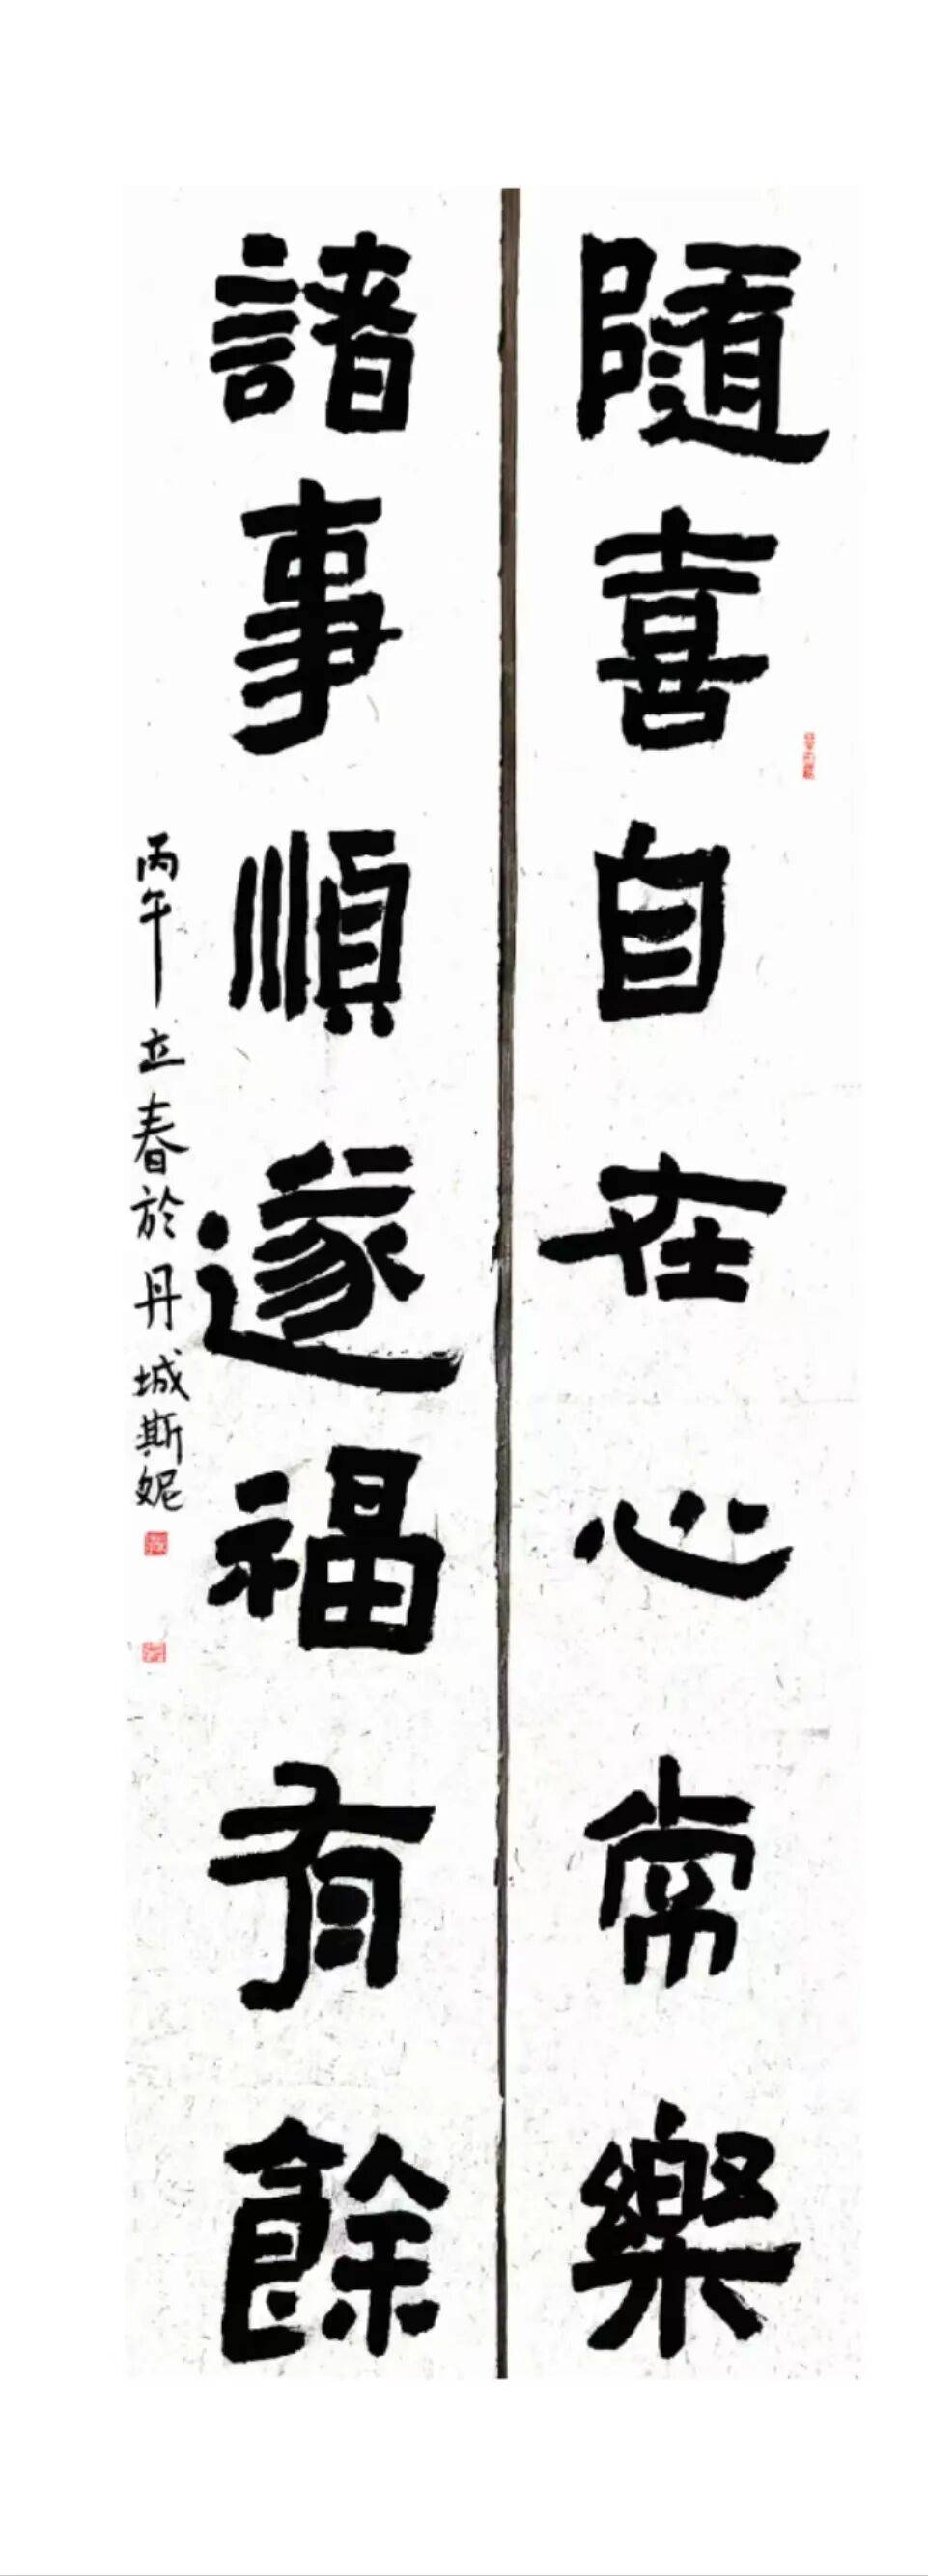 隨喜自在心常樂
諸事順遂福有餘
丙午立春於丹城斯妮